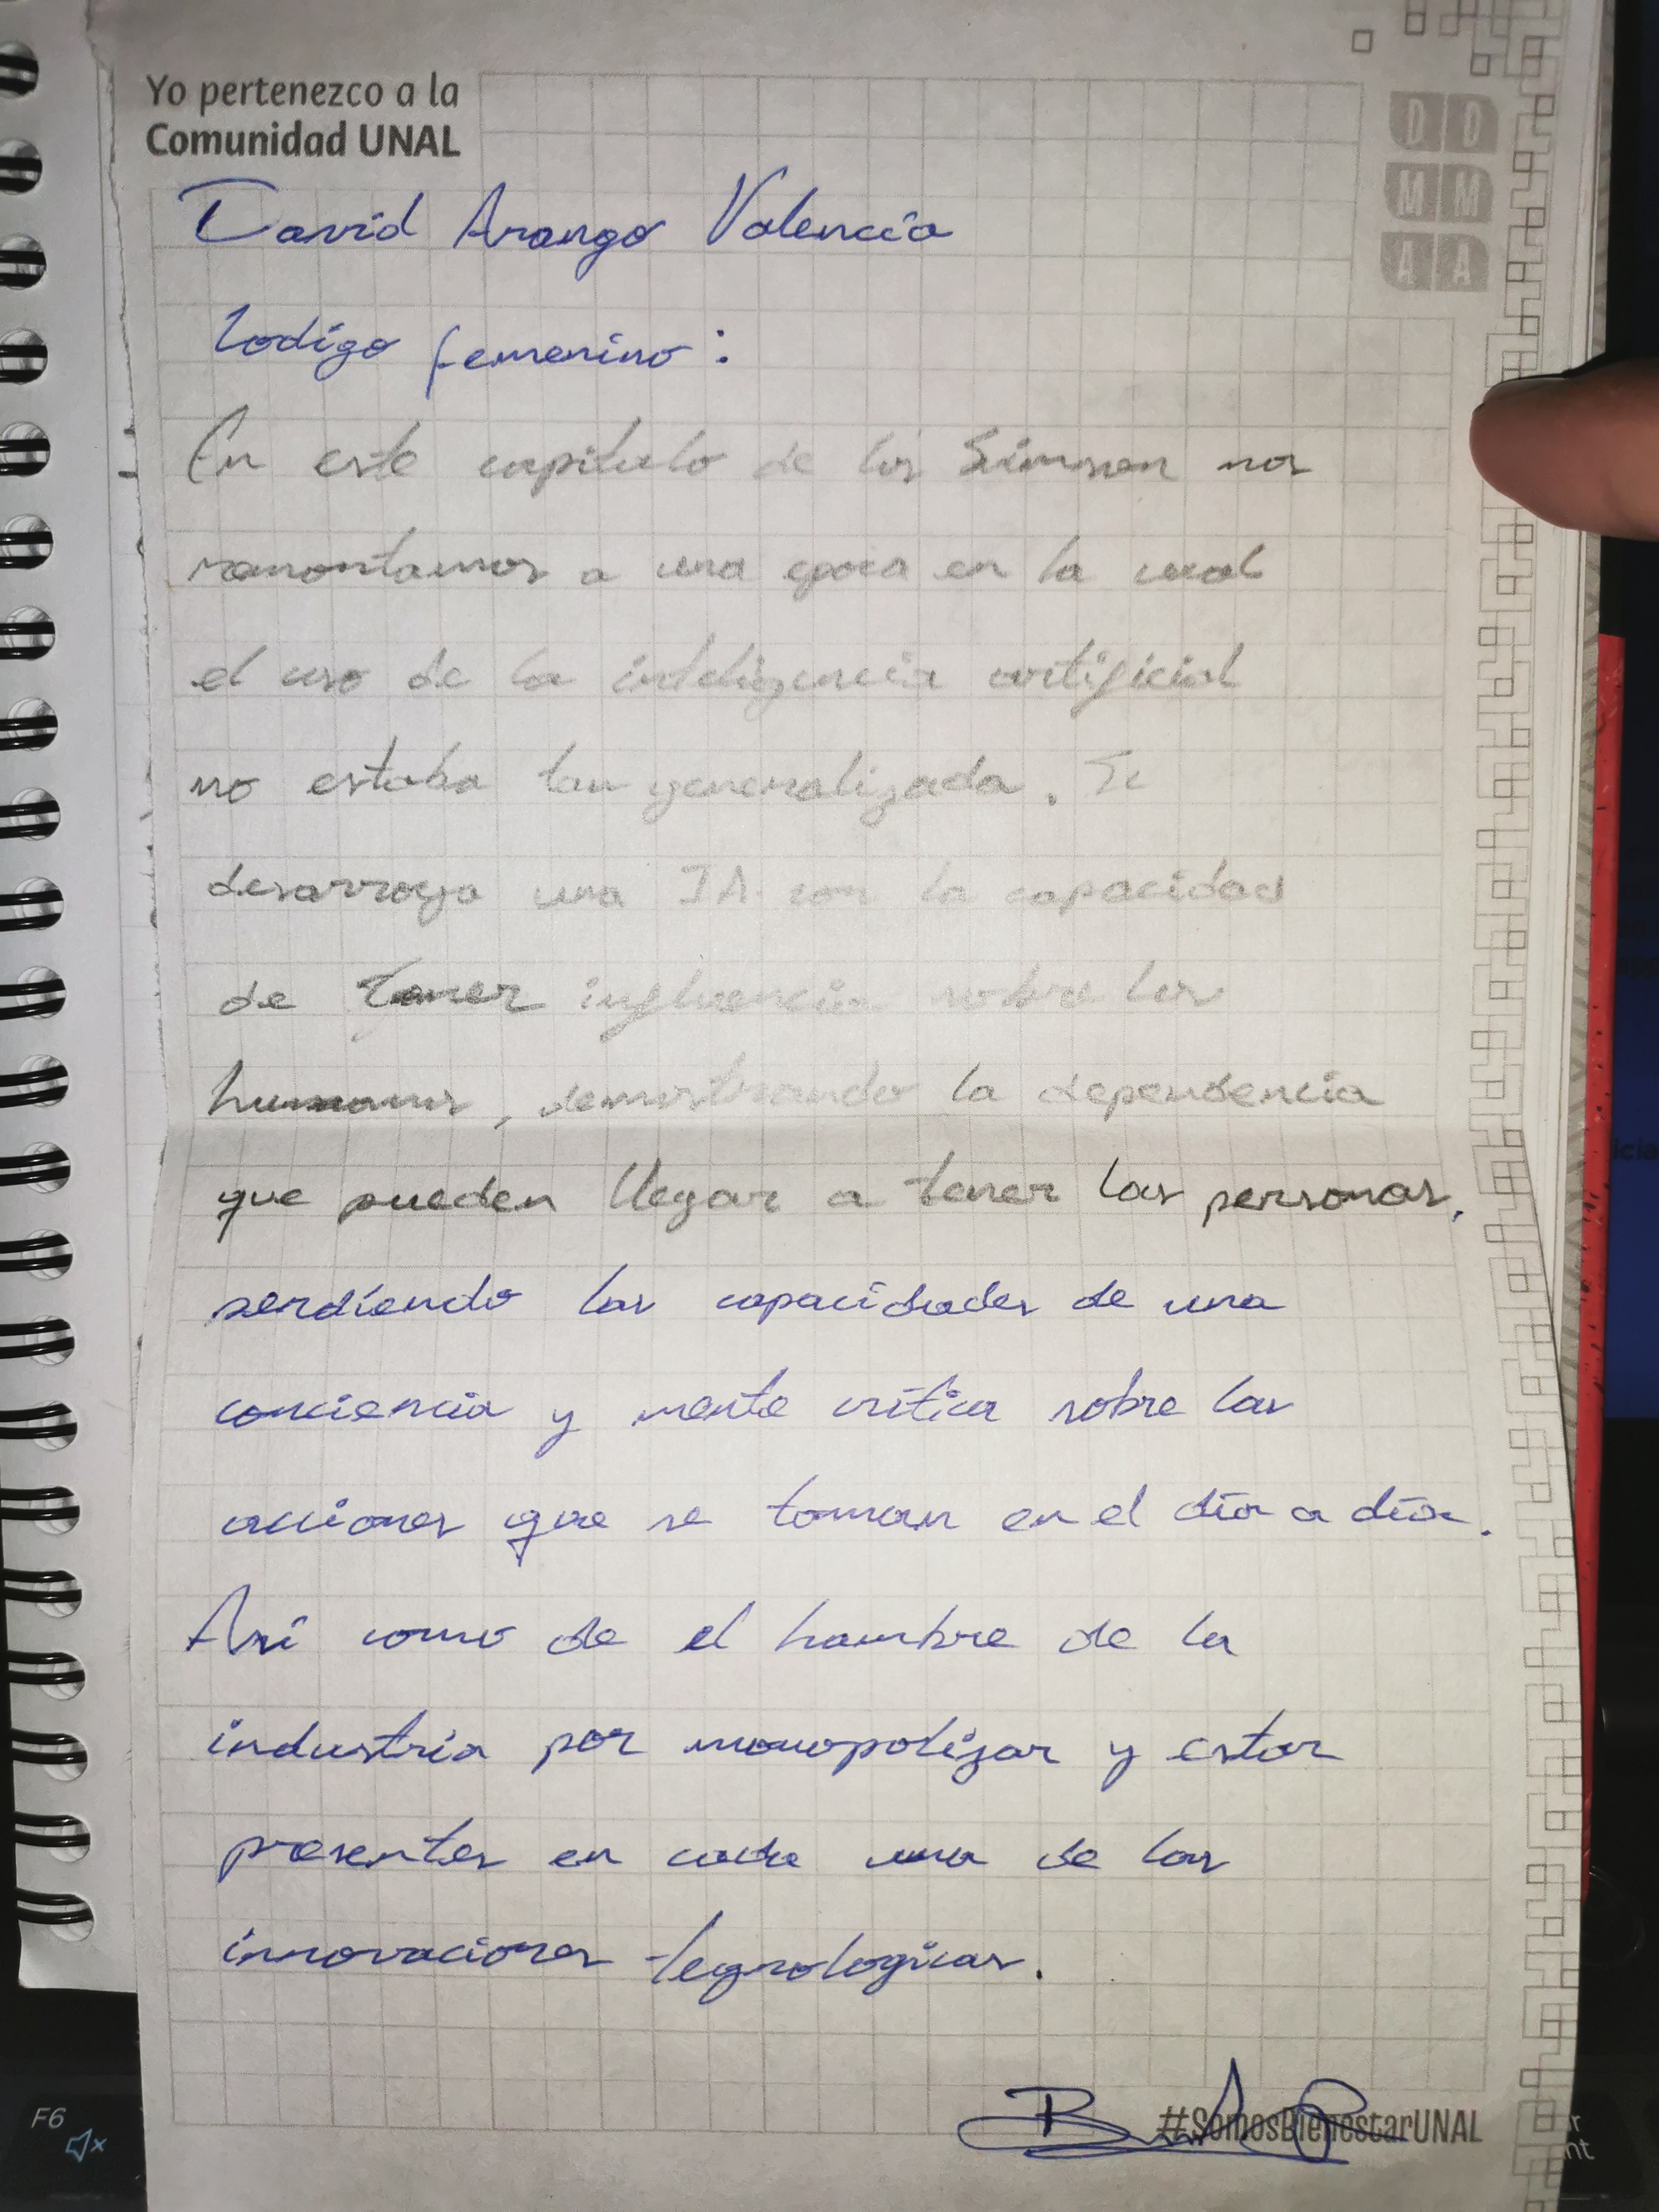 Yo pertenezco a la
Comunidad UNAL
D D
M M
A A
David Arango Valencia
Codigo femenino:
En este capitulo de los Simson nos
remontamos a una epoca en la cual
el uso de la inteligencia artificial
no estaba tan generalizada. Se
desarroya una IA con la capacidad
de tener influencia sobre los
humanos, demostrando la dependencia
que pueden llegar a tener las personas,
perdiendo las capacidades de una
conciencia y mente critica sobre las
acciones que se toman en el día a día.
Asi como de el hambre de la
industria por monopolizar y estar
presentes en cada una de las
innovaciones tegnologicas.
#SomosBienestarUNAL
F6